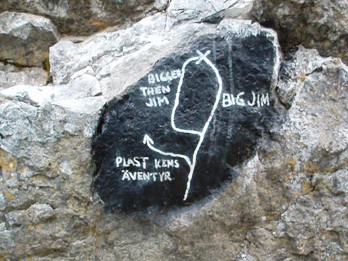 BIGGER
THEN
JIM
BIG JIM
PLAST KENS
ÄVENTYR